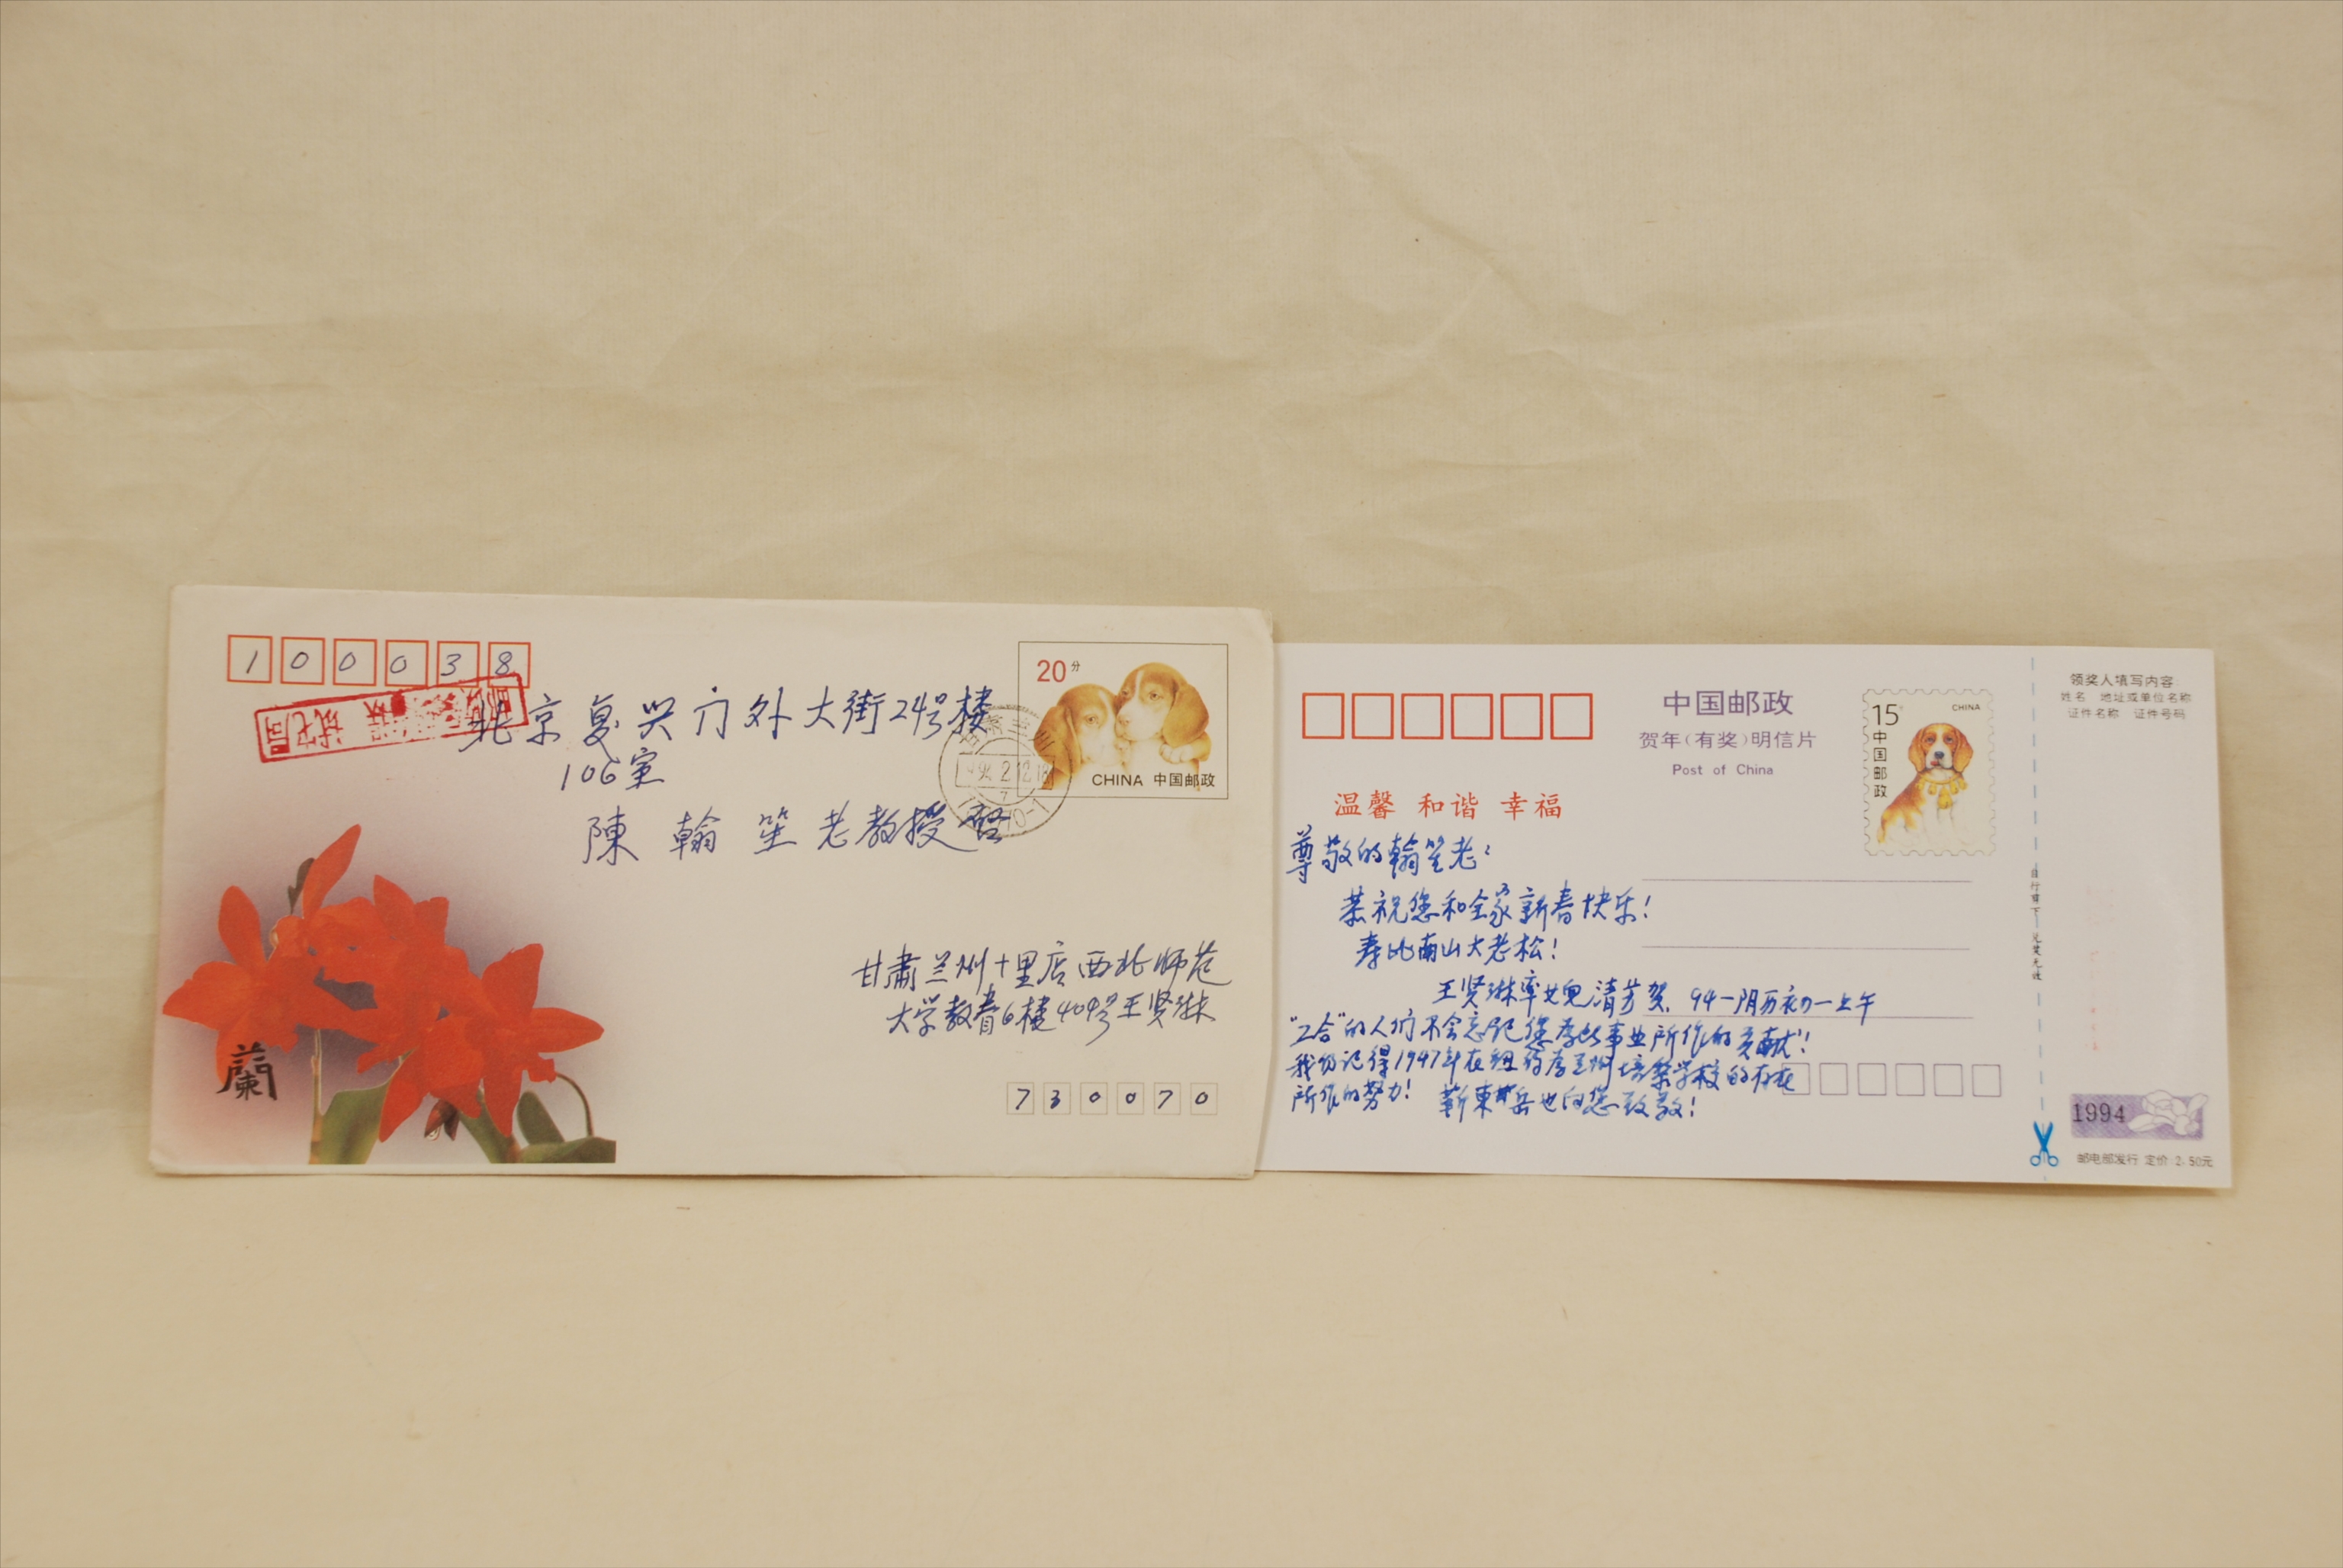 100038
北京复兴门外大街24号楼
106室
陳翰笙老教授啓
20分
CHINA 中国邮政
甘肃兰州十里店西北师范
大学教香6楼404号王贤琳
730070
蘭
中国邮政
贺年(有奖)明信片
Post of China
15
CHINA
中国邮政
温馨 和谐 幸福
尊敬的翰笙老:
恭祝您和全家新春快乐!
寿比南山大老松!
王贤琳率女儿清芳贺. 94一阴历初一上午
"工合"的人们不会忘记您为此事业所作的贡献!
我仍记得1947年在纽约为兰州培黎学校的存在
所作的努力! 靳東岳也向您致敬!
领奖人填写内容
姓名 地址或单位名称
证件名称 证件号码
自行剪下 兑奖无效
1994
邮电部发行 定价:2.50元